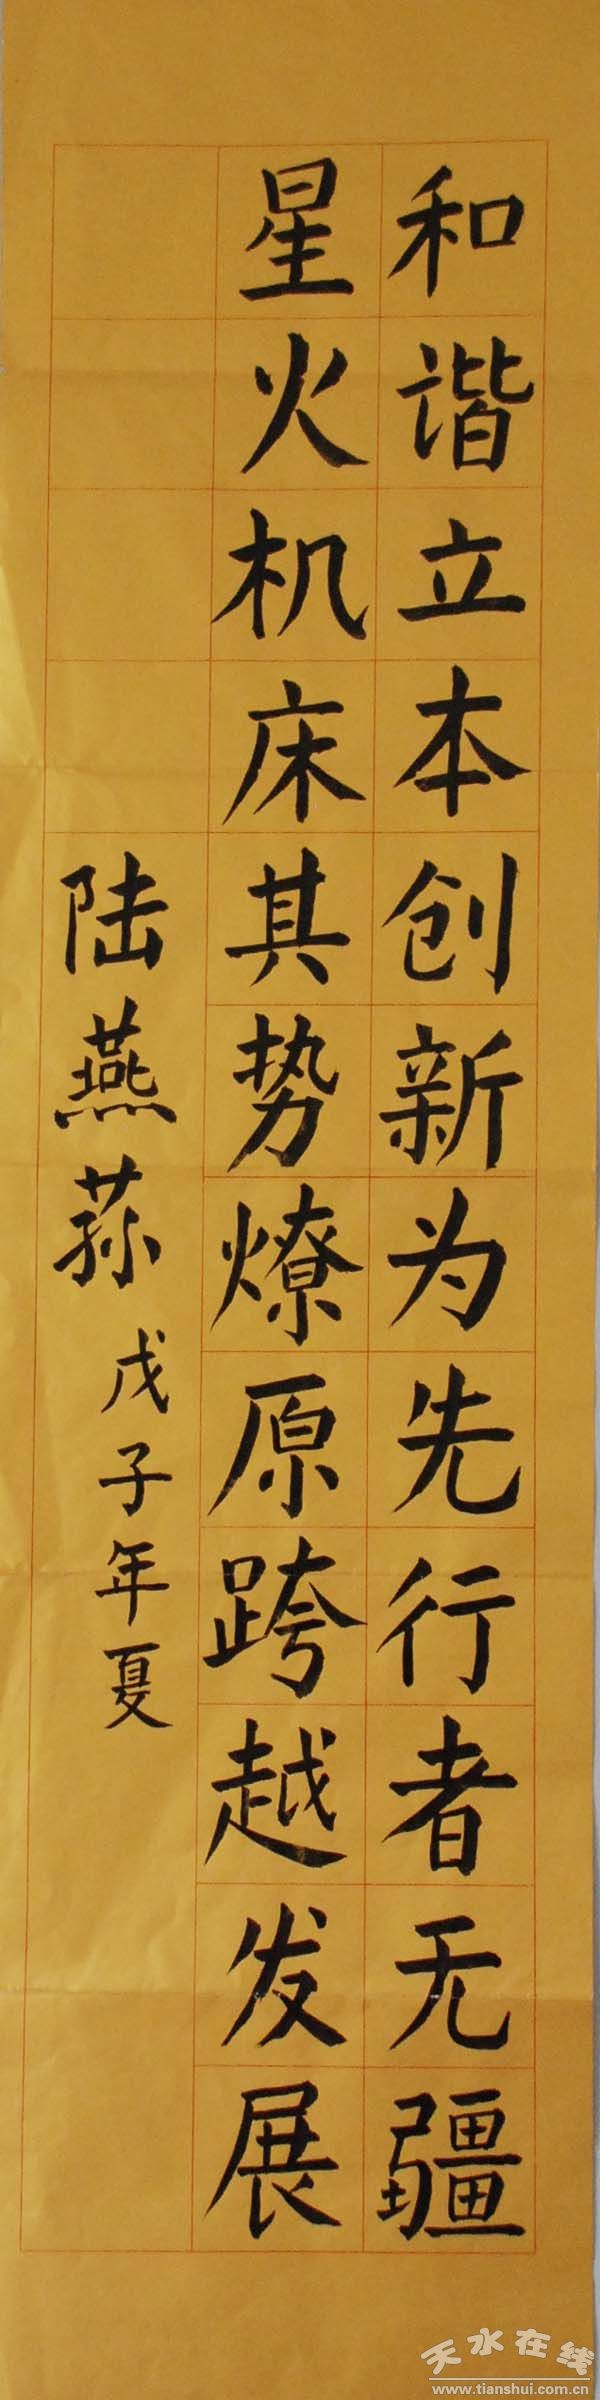 和谐立本创新为先行者无疆
星火机床其势燎原跨越发展
陆燕荪 戊子年夏
天水在线
www.tianshui.com.cn